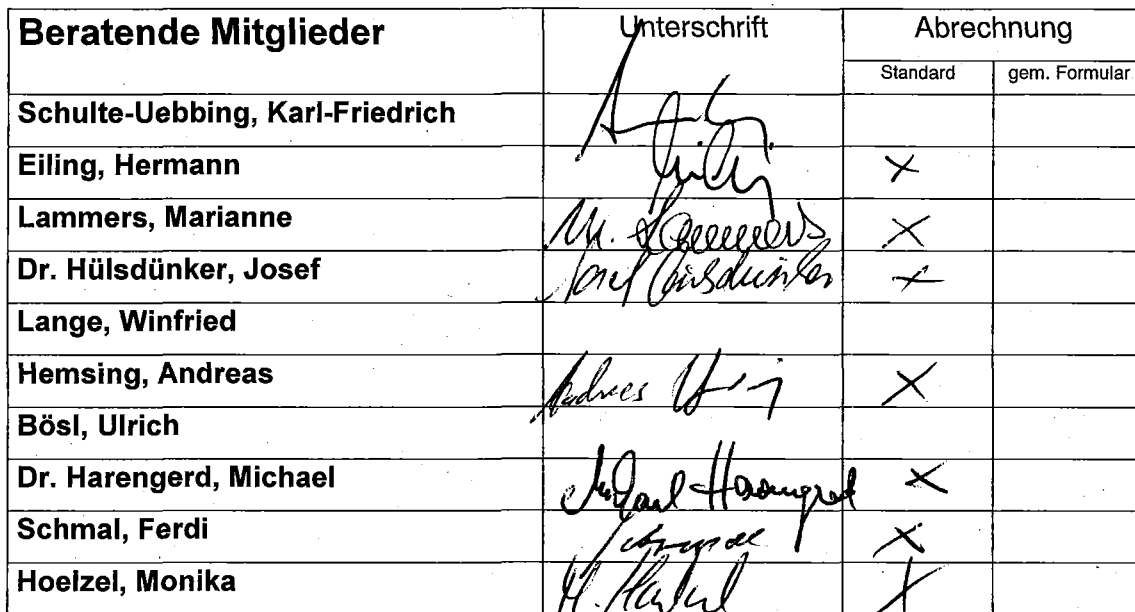 Beratende Mitglieder Unterschrift Abrechnung
Standard gem. Formular
Schulte-Uebbing, Karl-Friedrich
Eiling, Hermann X
Lammers, Marianne M. Lammers X
Dr. Hülsdünker, Josef Josef Hülsdünker X
Lange, Winfried
Hemsing, Andreas Andreas X
Bösl, Ulrich
Dr. Harengerd, Michael Michael Harengerd X
Schmal, Ferdi X
Hoelzel, Monika X